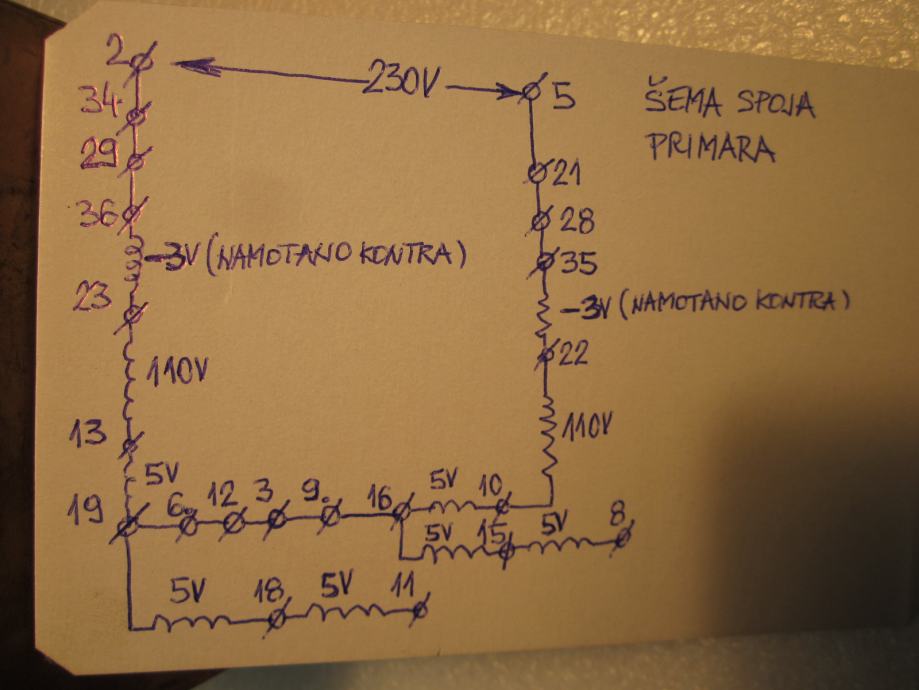 2
230V
5
ŠEMA SPOJA
PRIMARA
34
29
21
36
28
-3V (NAMOTANO KONTRA)
35
23
-3V (NAMOTANO KONTRA)
22
110V
110V
13
5V
19
6.
12
3
9.
16
5V
10
5V
15
5V
8
5V
18
5V
11